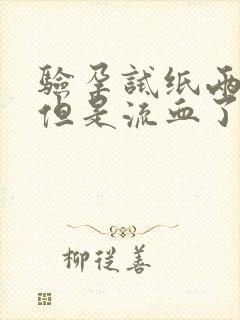 验孕试纸两
但是流血了
柳從善